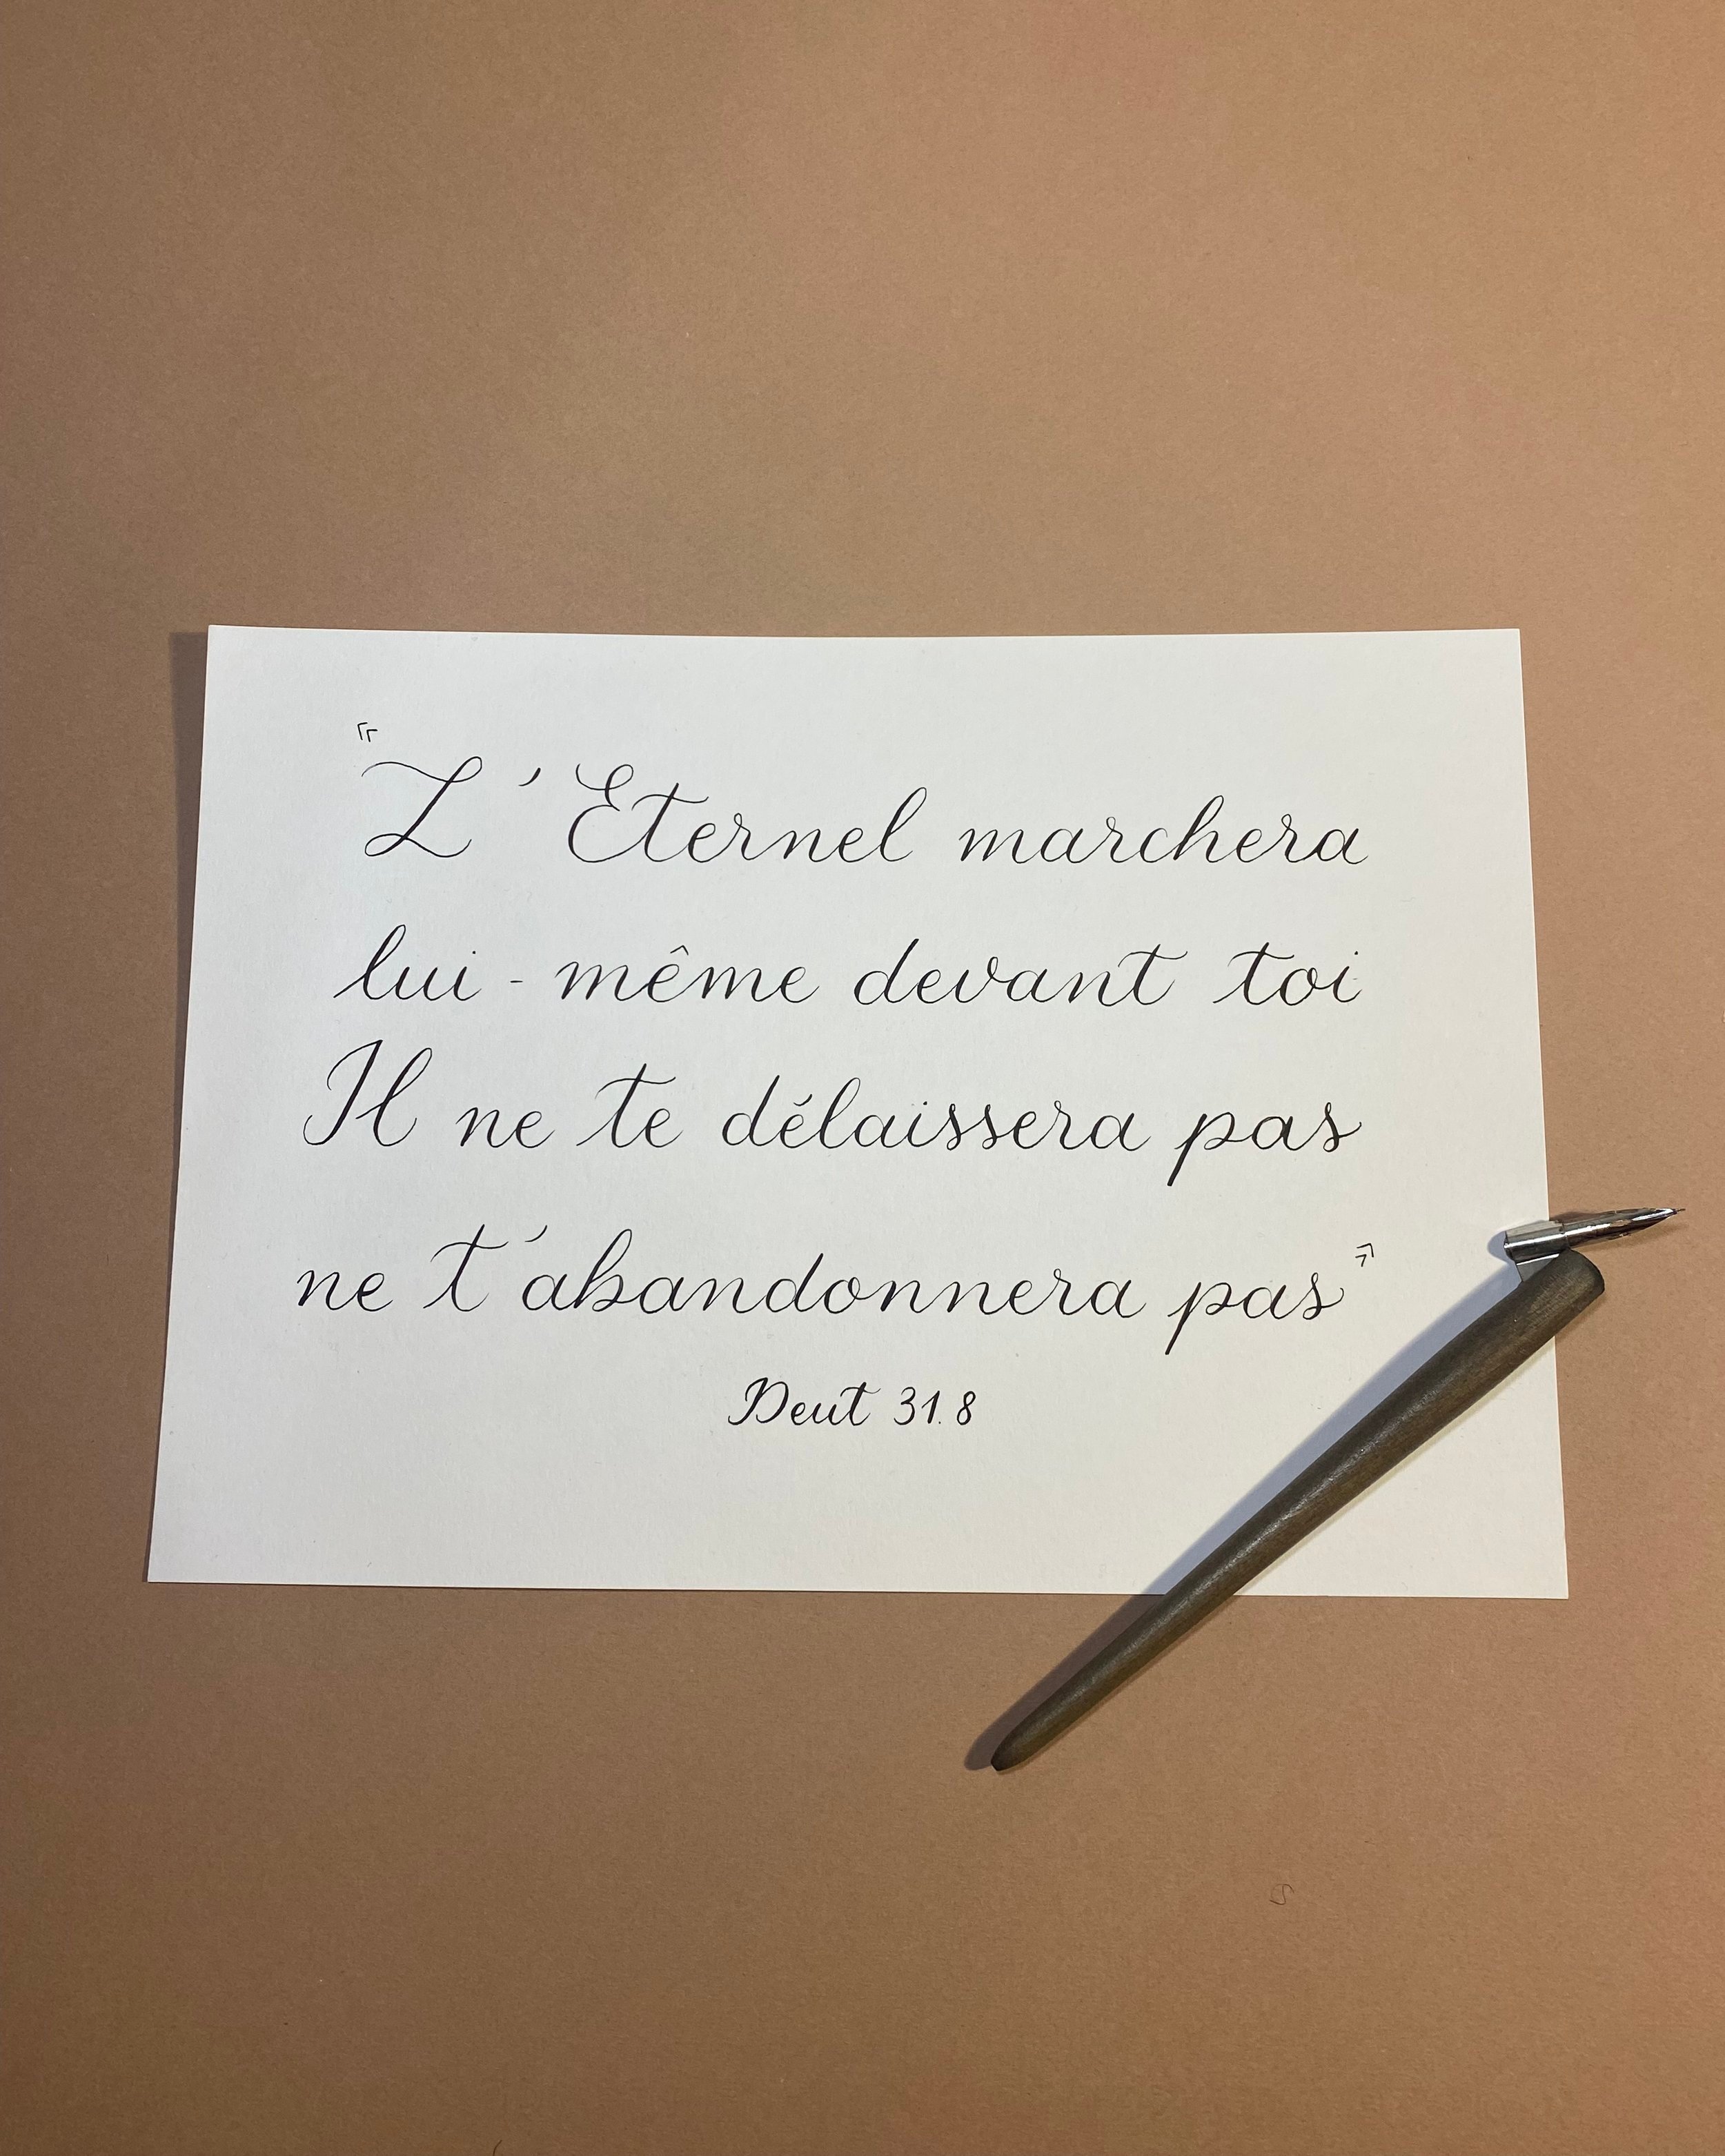 "L'Eternel marchera
lui-même devant toi
Il ne te délaissera pas
ne t'abandonnera pas"
Deut 31.8